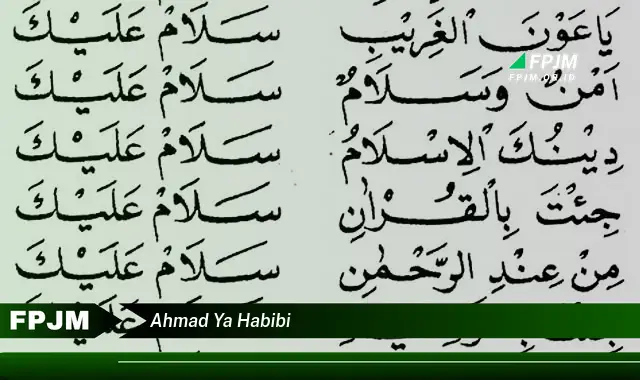 يَا عَوْنَ الْغَرِيْبِ سَلَامْ عَلَيْكَ
FPJM
FPJM.OR.ID
اَمْنٌ وَسَلَامٌ سَلَامْ عَلَيْكَ
دِيْنُكَ الْاِسْلَامُ سَلَامْ عَلَيْكَ
جِئْتَ بِالْقُرْاٰنِ سَلَامْ عَلَيْكَ
مِنْ عِنْدِ الرَّحْمٰنِ سَلَامْ عَلَيْكَ
FPJM
Ahmad Ya Habibi